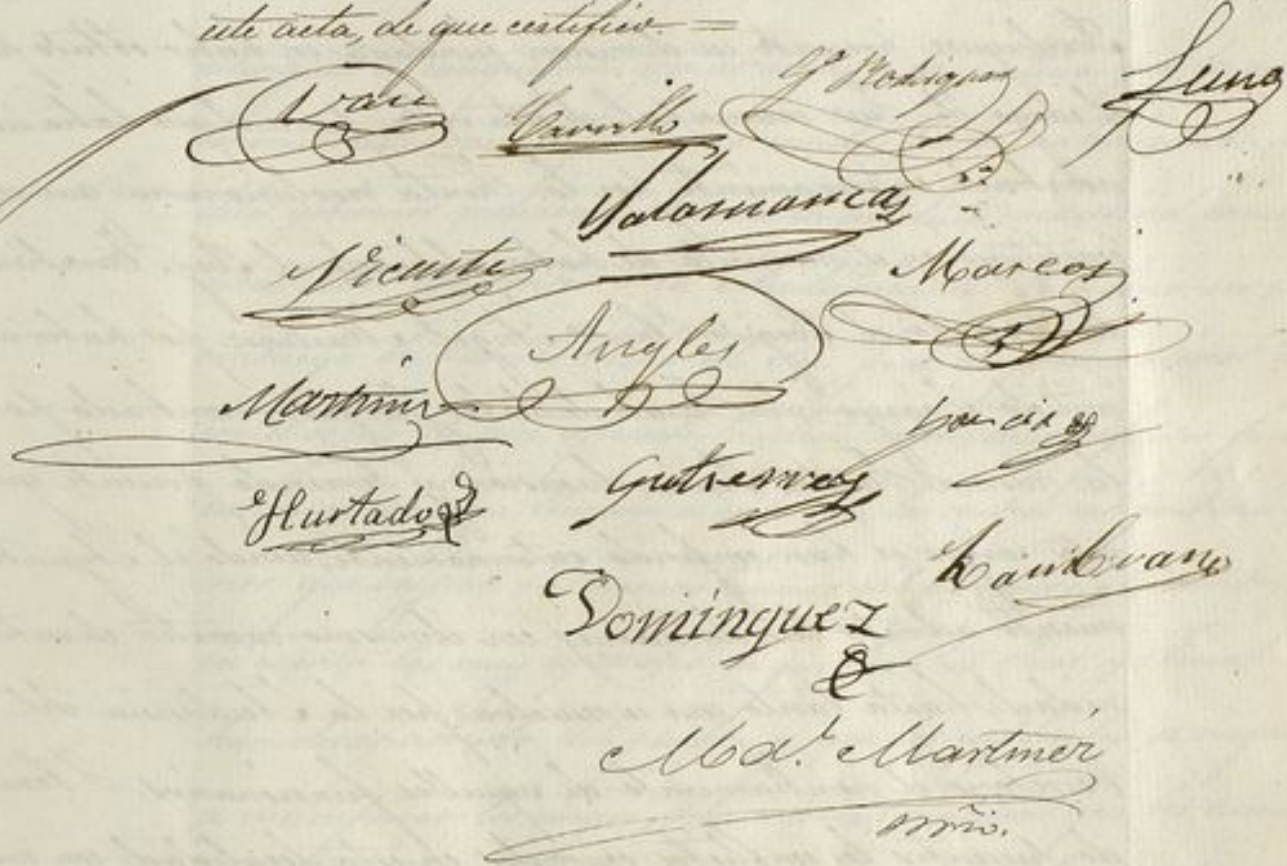 este acta, de que certifico. =
Carrillo Gª Rodriguez Luna
Salamanca
Vicente Marcos
Angles
Martinez
Garcia
Hurtado Gutierrez
Dominguez
Martinez
Srio.